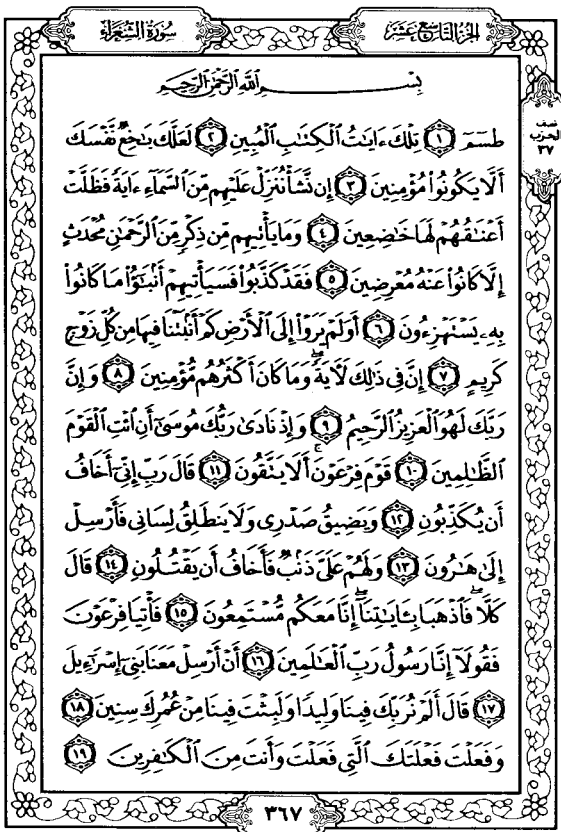 الجزء التاسع عشر
سورة الشعراء
بسم الله الرحمن الرحيم
نصف
الحزب
٣٧
طسٓمٓ ١ تِلْكَ ءَايَٰتُ ٱلْكِتَٰبِ ٱلْمُبِينِ ٢ لَعَلَّكَ بَٰخِعٌ نَّفْسَكَ
أَلَّا يَكُونُوا۟ مُؤْمِنِينَ ٣ إِن نَّشَأْ نُنَزِّلْ عَلَيْهِم مِّنَ ٱلسَّمَآءِ ءَايَةً فَظَلَّتْ
أَعْنَٰقُهُمْ لَهَا خَٰضِعِينَ ٤ وَمَا يَأْتِيهِم مِّن ذِكْرٍ مِّنَ ٱلرَّحْمَٰنِ مُحْدَثٍ
إِلَّا كَانُوا۟ عَنْهُ مُعْرِضِينَ ٥ فَقَدْ كَذَّبُوا۟ فَسَيَأْتِيهِمْ أَنۢبَٰٓؤُا۟ مَا كَانُوا۟
بِهِۦ يَسْتَهْزِءُونَ ٦ أَوَلَمْ يَرَوْا۟ إِلَى ٱلْأَرْضِ كَمْ أَنۢبَتْنَا فِيهَا مِن كُلِّ زَوْجٍ
كَرِيمٍ ٧ إِنَّ فِى ذَٰلِكَ لَءَايَةً ۖ وَمَا كَانَ أَكْثَرُهُم مُّؤْمِنِينَ ٨ وَإِنَّ
رَبَّكَ لَهُوَ ٱلْعَزِيزُ ٱلرَّحِيمُ ٩ وَإِذْ نَادَىٰ رَبُّكَ مُوسَىٰٓ أَنِ ٱئْتِ ٱلْقَوْمَ
ٱلظَّٰلِمِينَ ١٠ قَوْمَ فِرْعَوْنَ ۚ أَلَا يَتَّقُونَ ١١ قَالَ رَبِّ إِنِّىٓ أَخَافُ
أَن يُكَذِّبُونِ ١٢ وَيَضِيقُ صَدْرِى وَلَا يَنطَلِقُ لِسَانِى فَأَرْسِلْ
إِلَىٰ هَٰرُونَ ١٣ وَلَهُمْ عَلَىَّ ذَنۢبٌ فَأَخَافُ أَن يَقْتُلُونِ ١٤ قَالَ
كَلَّا ۖ فَٱذْهَبَا بِـَٔايَٰتِنَآ ۖ إِنَّا مَعَكُم مُّسْتَمِعُونَ ١٥ فَأْتِيَا فِرْعَوْنَ
فَقُولَآ إِنَّا رَسُولُ رَبِّ ٱلْعَٰلَمِينَ ١٦ أَنْ أَرْسِلْ مَعَنَا بَنِىٓ إِسْرَٰٓءِيلَ
١٧ قَالَ أَلَمْ نُرَبِّكَ فِينَا وَلِيدًا وَلَبِثْتَ فِينَا مِنْ عُمُرِكَ سِنِينَ ١٨
وَفَعَلْتَ فَعْلَتَكَ ٱلَّتِى فَعَلْتَ وَأَنتَ مِنَ ٱلْكَٰفِرِينَ ١٩
٣٦٧